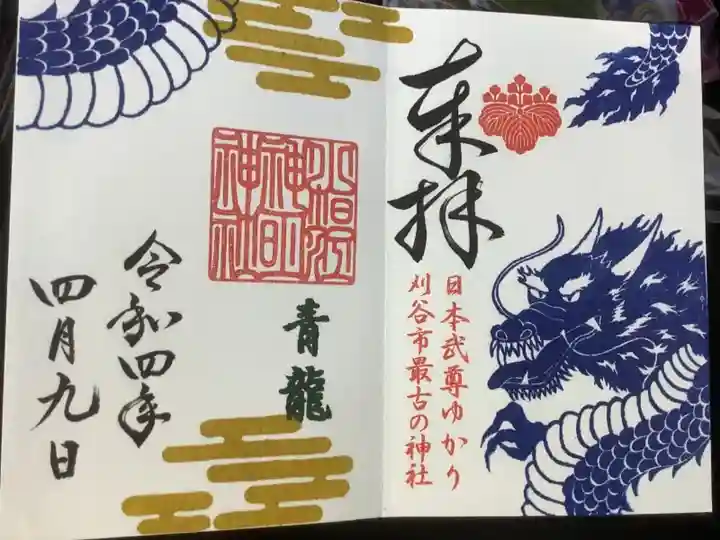 奉拝
日本武尊ゆかり
刈谷市最古の神社
小垣江
神明
神社
青龍
令和四年
四月九日